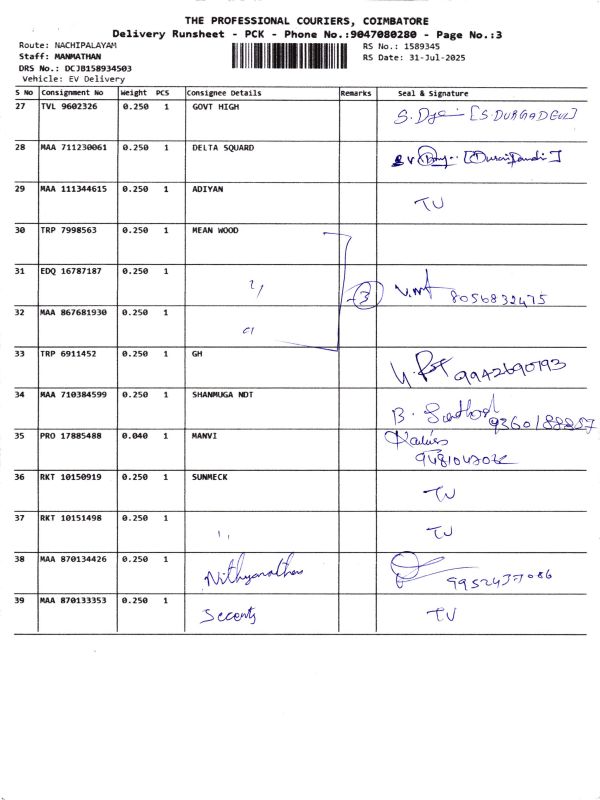 THE PROFESSIONAL COURIERS, COIMBATORE
Delivery Runsheet - PCK - Phone No.:9047080280 - Page No.:3
Route: NACHIPALAYAM RS No.: 1589345
Staff: MANMATHAN RS Date: 31-Jul-2025
DRS No.: DCJB158934503
Vehicle: EV Delivery
S No Consignment No Weight PCS Consignee Details Remarks Seal & Signature
27 TVL 9602326 0.250 1 GOVT HIGH [S.DURGADEVI]
28 MAA 711230061 0.250 1 DELTA SQUARD
29 MAA 111344615 0.250 1 ADIYAN TU
30 TRP 7998563 0.250 1 MEAN WOOD
31 EDQ 16787187 0.250 1 〃 3 8056832475
32 MAA 867681930 0.250 1 〃
33 TRP 6911452 0.250 1 GH 9942690793
34 MAA 710384599 0.250 1 SHANMUGA NDT B. 9360188857
35 PRO 17885488 0.040 1 MANVI
36 RKT 10150919 0.250 1 SUNMECK TU
37 RKT 10151498 0.250 1 〃 TU
38 MAA 870134426 0.250 1 Nithyanathan 9952437086
39 MAA 870133353 0.250 1 TU